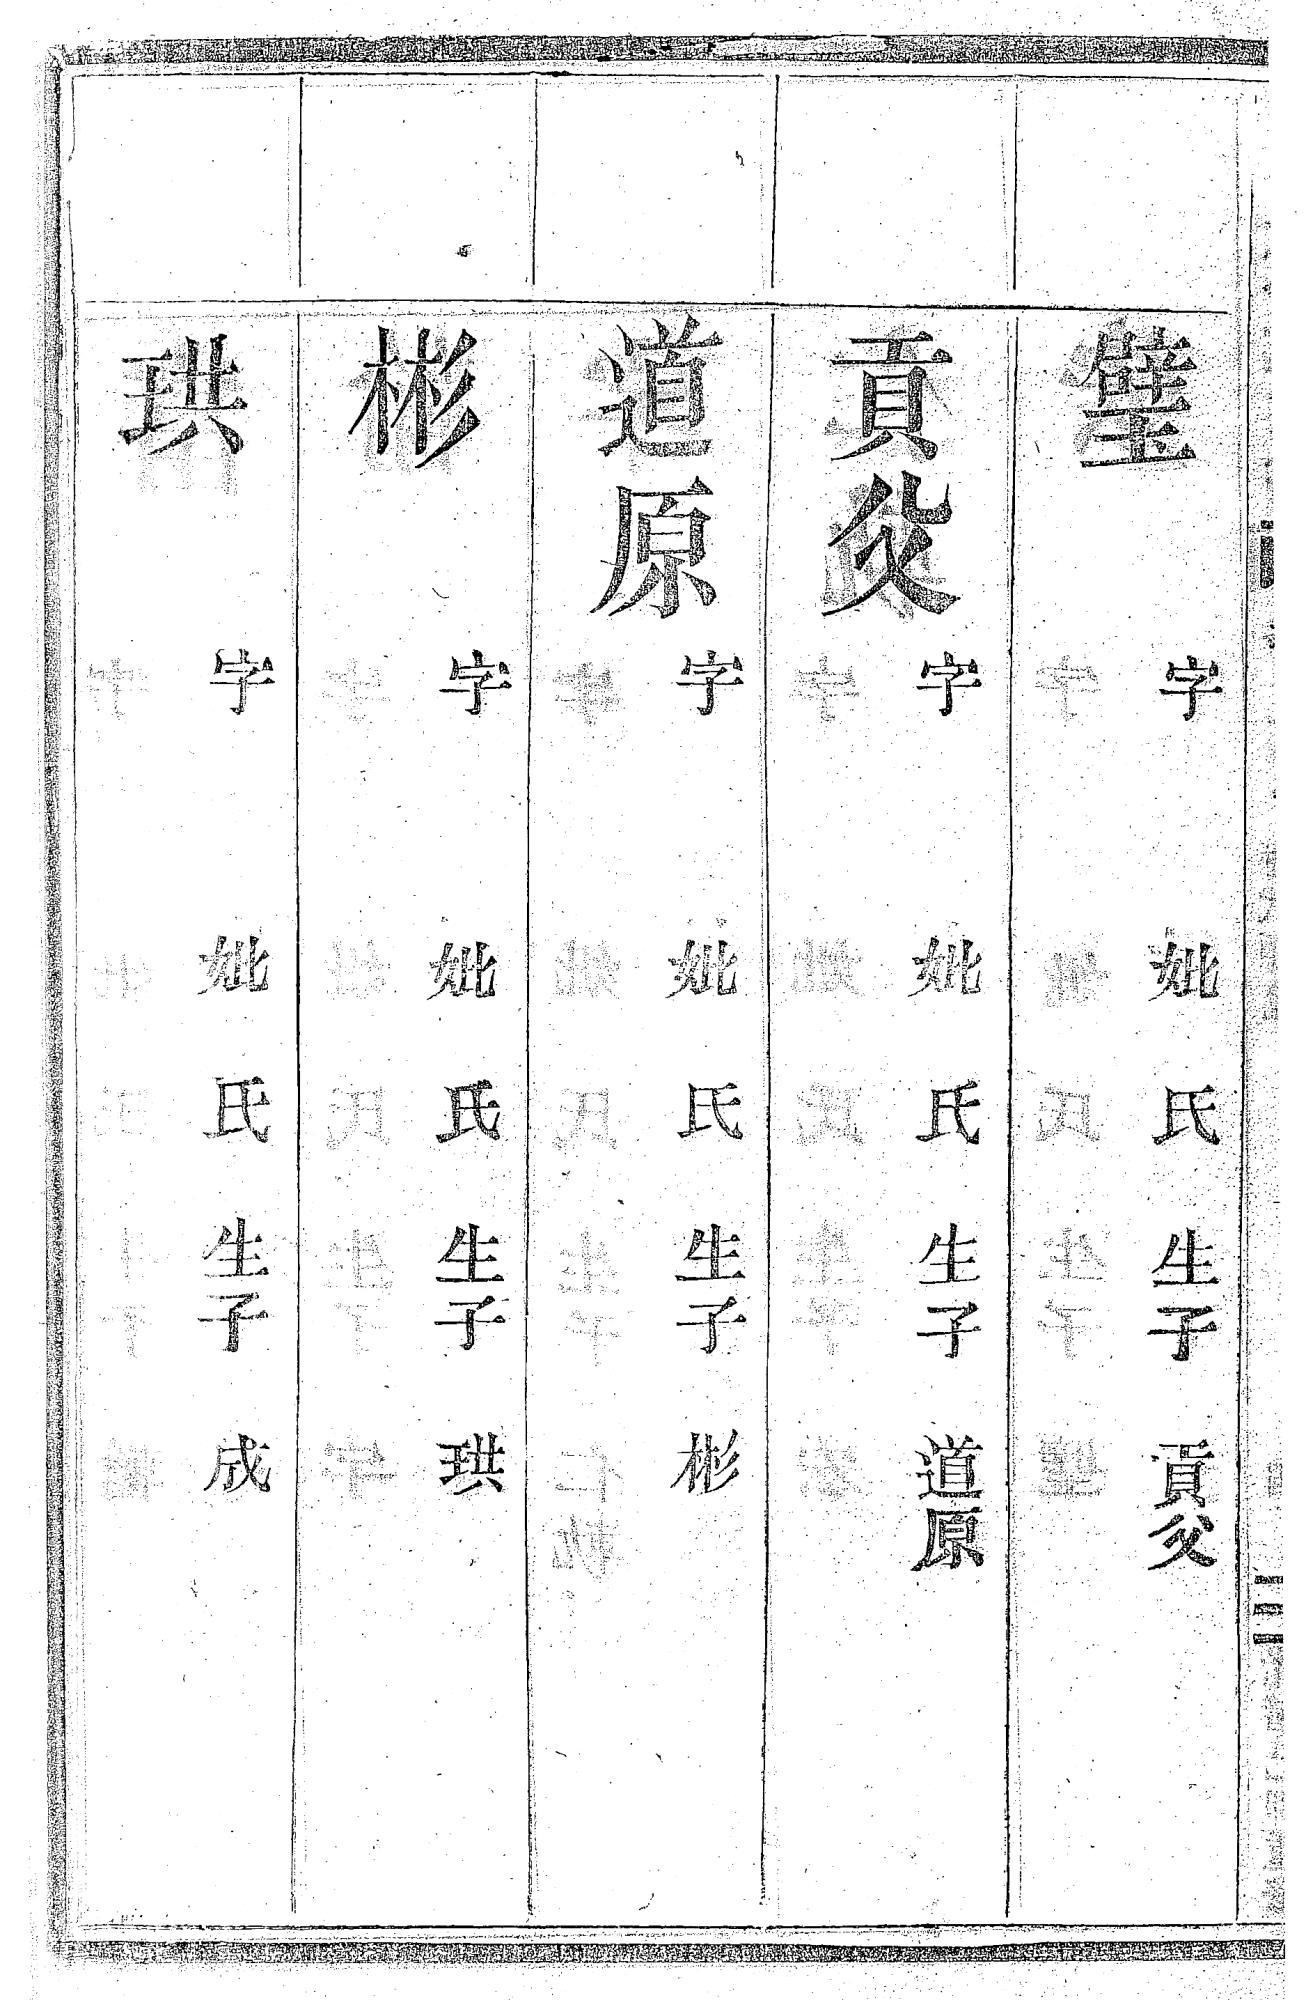 璧 字 妣 氏 生子 貢父
貢父 字 妣 氏 生子 道原
道原 字 妣 氏 生子 彬
彬 字 妣 氏 生子 珙
珙 字 妣 氏 生子 成